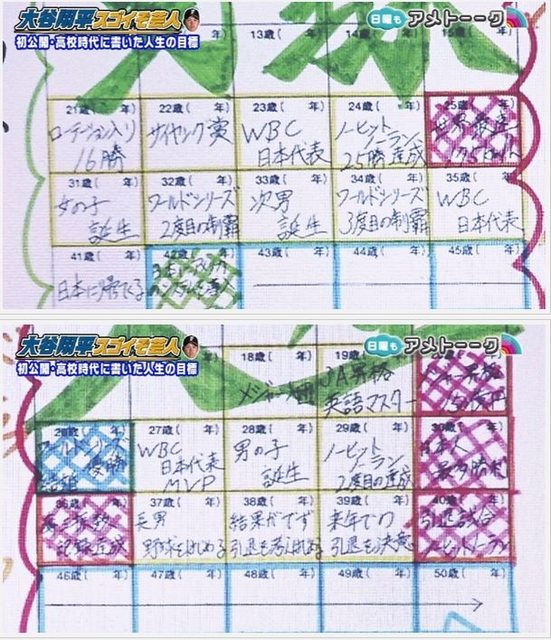 大谷翔平スゴイぞ芸人
初公開・高校時代に書いた人生の目標
日曜も アメトーーク
13歳( 年)
14歳( 年)
21歳( 年) 22歳( 年) 23歳( 年) 24歳( 年) 25歳( 年)
ローテーション入り
16勝
サイヤング賞
WBC
日本代表
ノーヒット
ノーラン
25勝達成
世界最速
175km/h
31歳( 年) 32歳( 年) 33歳( 年) 34歳( 年) 35歳( 年)
女の子
誕生
ワールドシリーズ
2度目の制覇
次男
誕生
ワールドシリーズ
3度目の制覇
WBC
日本代表
41歳( 年) 42歳( 年) 43歳( 年) 44歳( 年) 45歳( 年)
日本に帰ってくる
大谷翔平スゴイぞ芸人
初公開・高校時代に書いた人生の目標
日曜も アメトーーク
18歳( 年) 19歳(
メジャー入団
3A昇格
英語マスター
26歳( 年) 27歳( 年) 28歳( 年) 29歳( 年) 30歳( 年)
ワールドシリーズ
優勝
結婚
WBC
日本代表
MVP
男の子
誕生
ノーヒット
ノーラン
2度目の達成
日本人
最多勝利
36歳( 年) 37歳( 年) 38歳( 年) 39歳( 年) 40歳( 年)
奪三振数
記録達成
長男
野球をはじめる
結果がでず
引退も考えはじめる
来年での
引退を決意
引退試合
ノーヒットノーラン
46歳( 年) 47歳( 年) 48歳( 年) 49歳( 年) 50歳( 年)